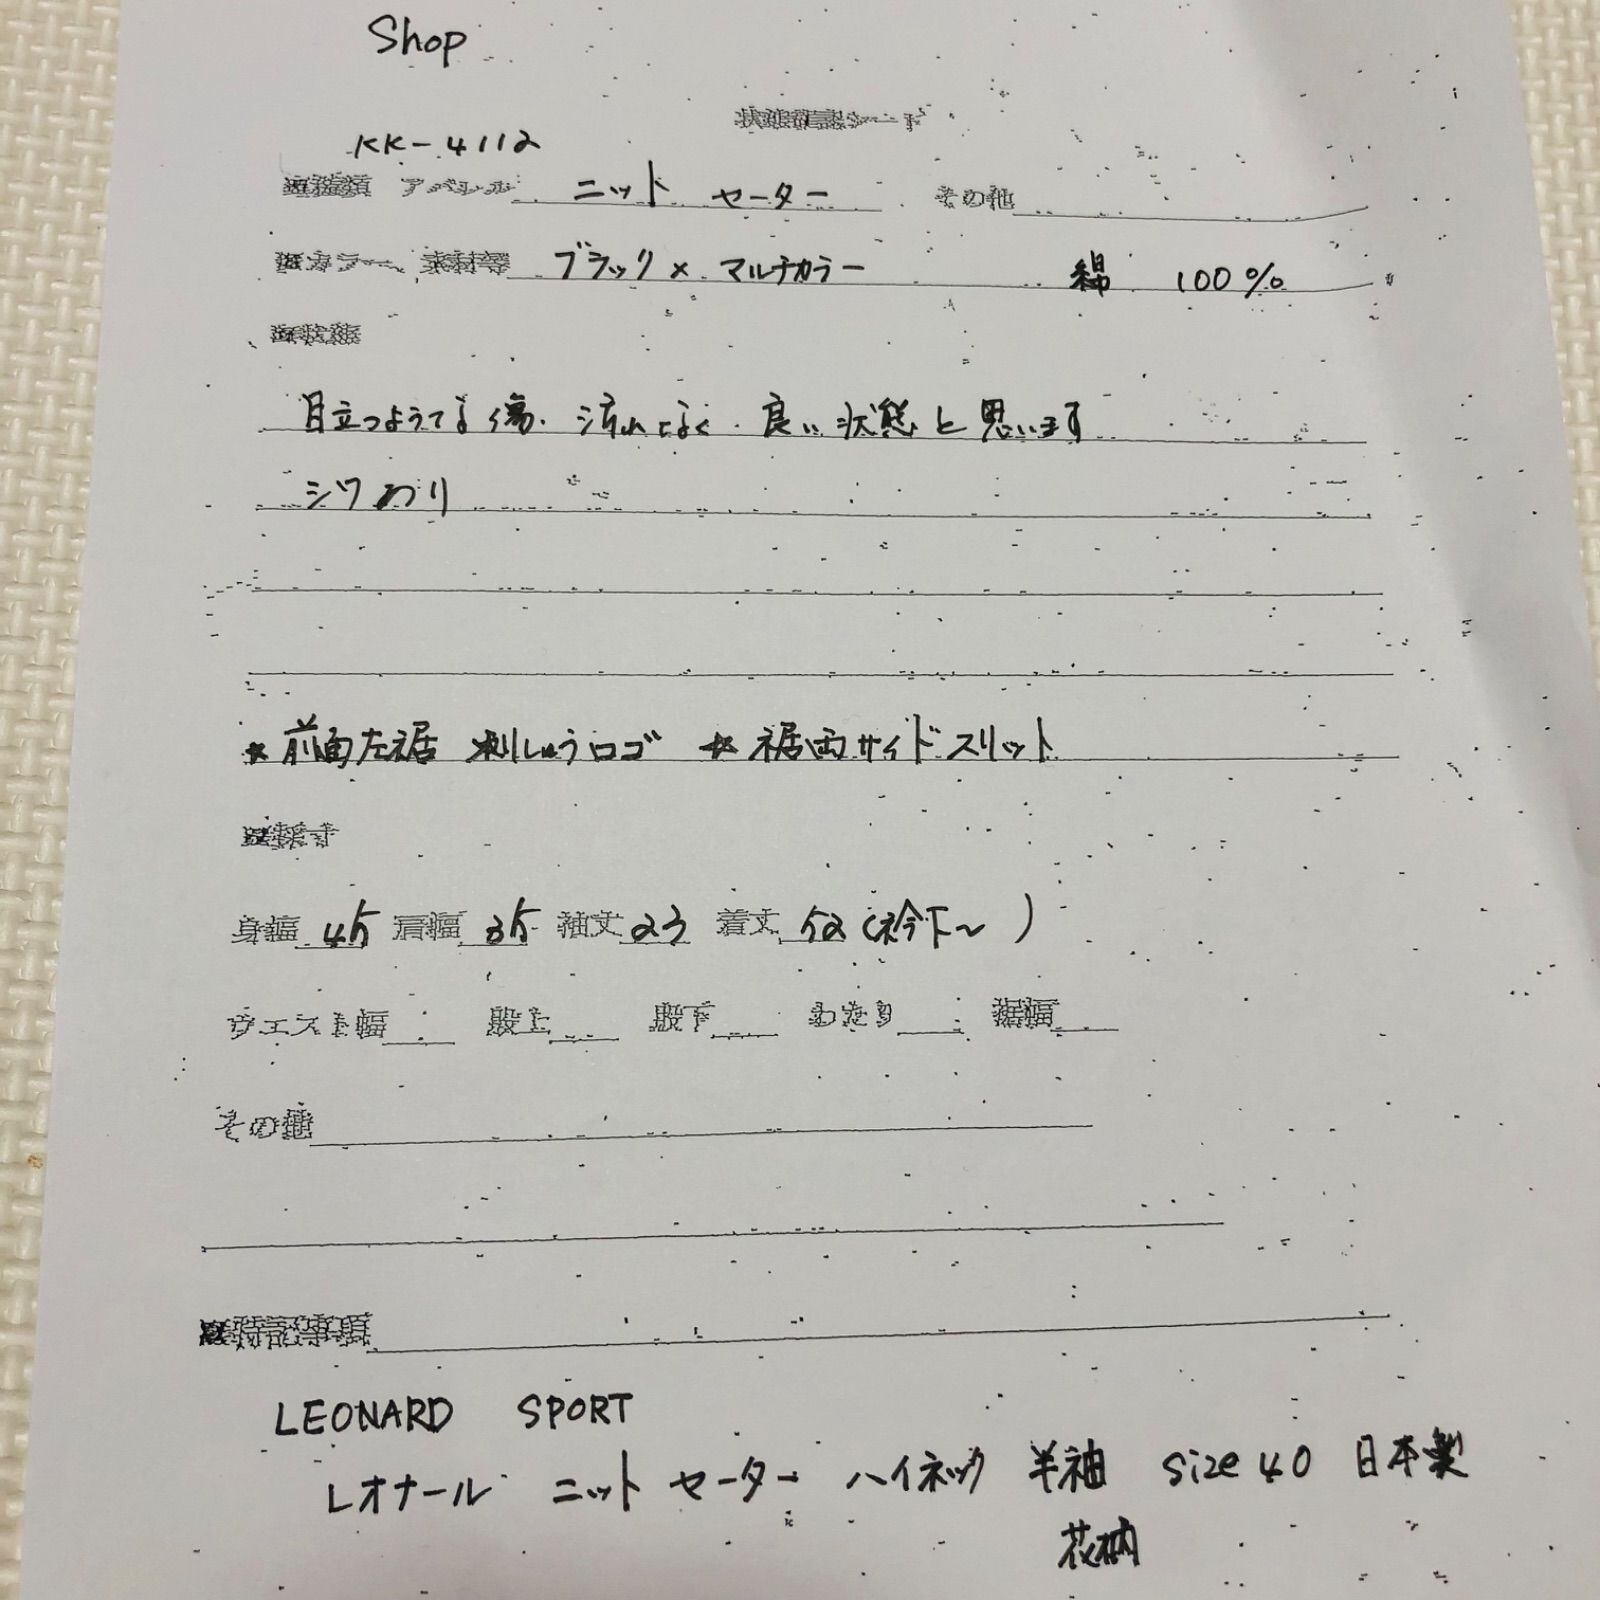 Shop
状態確認シート
KK-4112
■種類 アパレル ニット セーター その他
■カラー、素材等 ブラック×マルチカラー 綿 100%
■状態
目立つような傷、汚れはなく、良い状態と思います
シワあり
★前面左裾 刺しゅうロゴ ★裾両サイドスリット
■採寸
身幅 45 肩幅 35 袖丈 23 着丈 52(衿下~ )
ウエスト幅 股上 股下 わたり 裾幅
その他
■特記事項
LEONARD SPORT
レオナール ニット セーター ハイネック 半袖 size 40 日本製
花柄